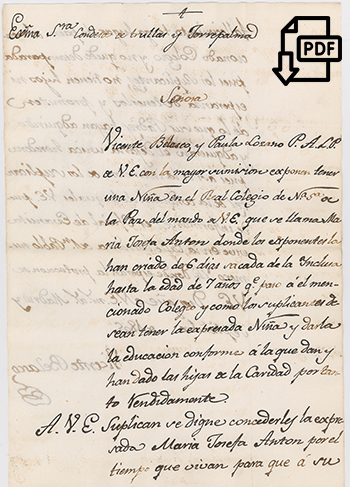 Exma Sra Condesa de trullas y Torrepalma
PDF
Señora
Vicente Belasco, y Paula Lozano P. A. L. P.
de V.E. con la mayor sumision exponen tener
una Niña en el Real Colegio de Nª Sra de
la Paz del mando de V.E. que se llama Ma
ria Josefa Anton donde los exponentes la
han criado de 6 dias sacada de la Inclusa
hasta la edad de 7 años qe paso á el men-
cionado Colegio y como los suplicantes de
sean tener la expresada Niña y darla
la educacion conforme á la que dan y
han dado las hijas de la Caridad por tan
to Rendidamente.
A. V. E. Suplican se digne concederles la expre
sada Maria Josefa Anton por el
tiempo que vivan para que á su